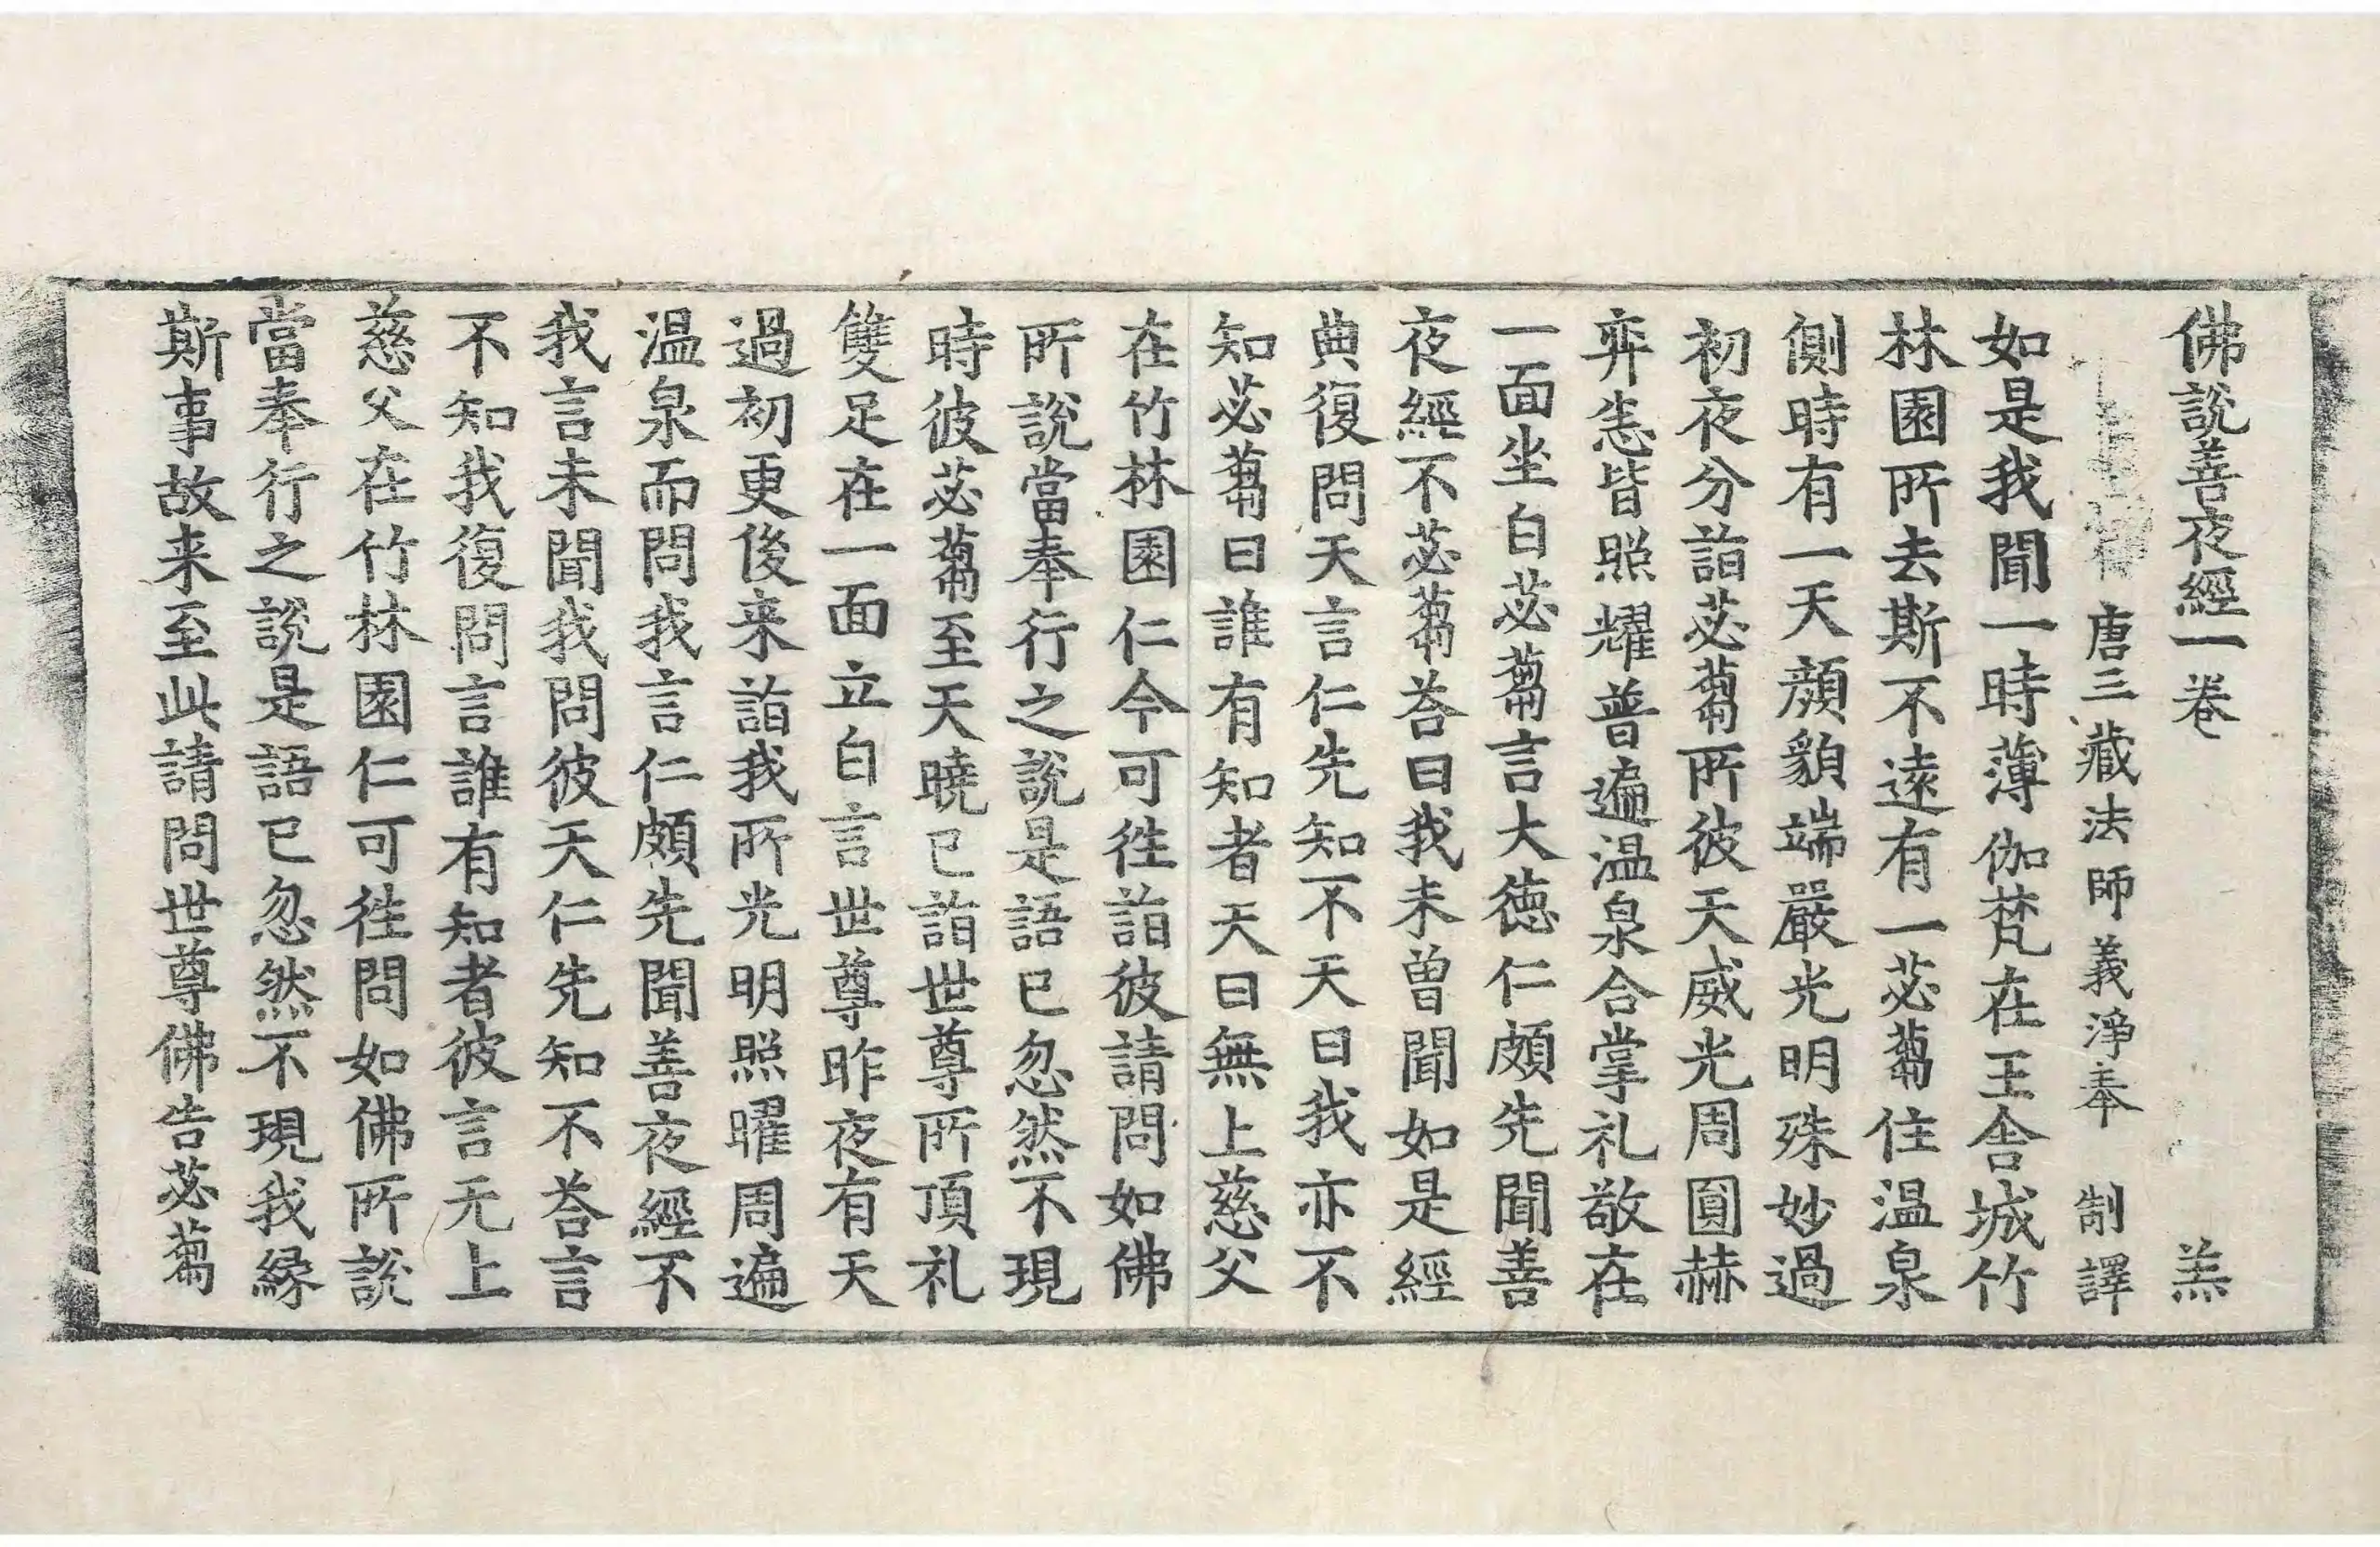 佛說善夜經一卷 羔
唐三藏法師義淨奉 制譯
如是我聞一時薄伽梵在王舍城竹
林園所去斯不遠有一苾蒭住温泉
側時有一天顏貌端嚴光明殊妙過
初夜分詣苾蒭所彼天威光周圓赫
弈恙皆照耀普遍温泉合掌礼敬在
一面坐白苾蒭言大德仁頗先聞善
夜經不苾蒭荅曰我未曾聞如是經
典復問天言仁先知不天曰我亦不
知苾蒭曰誰有知者天曰無上慈父
在竹林園仁今可徃詣彼請問如佛
所說當奉行之說是語已忽然不現
時彼苾蒭至天曉已詣世尊所頂礼
雙足在一面立白言世尊昨夜有天
過初更後来詣我所光明照曜周遍
温泉而問我言仁頗先聞善夜經不
我言未聞我問彼天仁先知不荅言
不知我復問言誰有知者彼言无上
慈父在竹林園仁可徃問如佛所說
當奉行之說是語已忽然不現我緣
斯事故来至此請問世尊佛告苾蒭